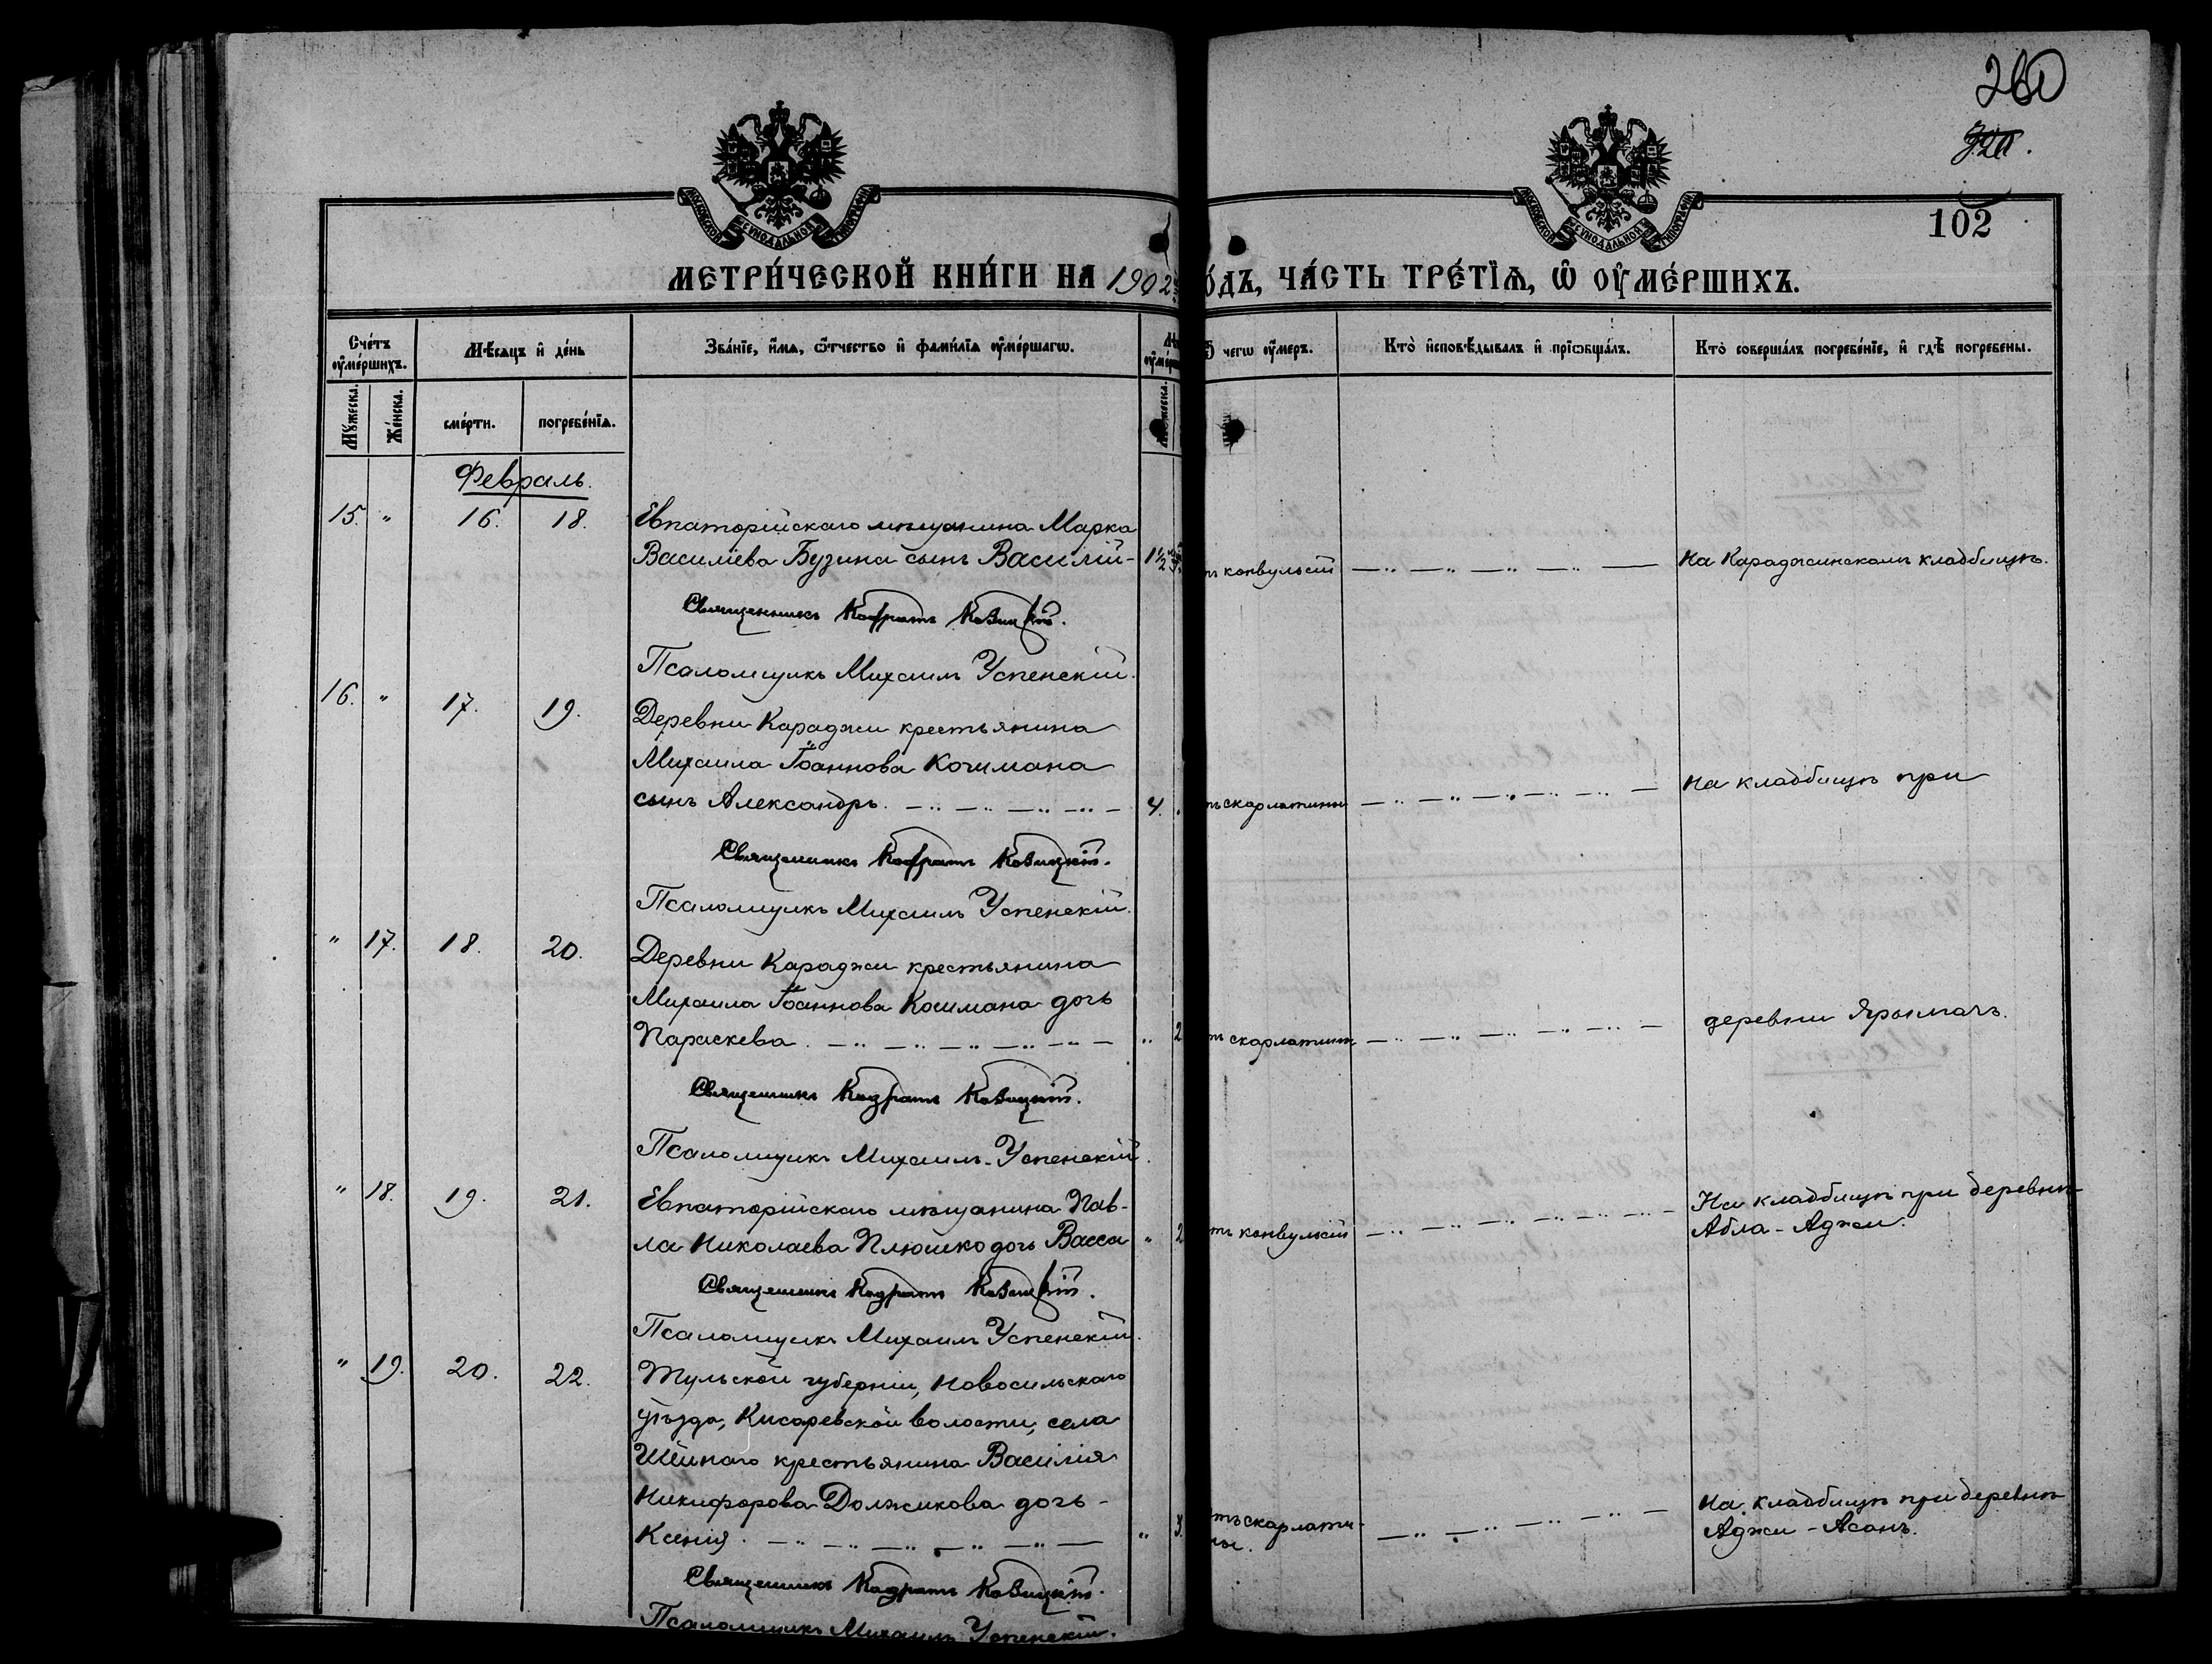 260
102
МОСКОВСКОЙ СѴНОДАЛЬНОЙ ТИПОГРАФІИ
МОСКОВСКОЙ СѴНОДАЛЬНОЙ ТИПОГРАФІИ
МЕТРИ́ЧЕСКОЙ КНИ́ГИ НА 1902 О́ДЪ, ЧА́СТЬ ТРЕ́ТЇѦ, Ѿ ОУ҆МЕ́РШИХЪ.
Сче́тъ оу҆ме́ршихъ.
Мꙋ́жеска.
Же́нска.
Мѣ́сѧцъ и҆ де́нь
сме́рти.
погребе́нїѧ.
Зва́нїе, и҆́мѧ, ѻ҆́тчество и҆ фами́лїѧ оу҆ме́ршагѡ.
чегѡ оу҆́меръ.
Кто̀ и҆сповѣ́дывалъ и҆ прїѡбща́лъ.
Кто̀ соверша́лъ погребе́нїе, и҆ гдѣ̀ погребены.
Февраль.
15. " 16. 18. Евпаторійскаго мѣщанина Марка
Василіева Бузина сынъ Василій - 1½ ъ конвульсій На Караджинскомъ кладбищѣ.
Священникъ Кодратъ Ковицкій.
Псаломщикъ Михаилъ Успенскій.
16. " 17. 19. Деревни Караджи крестьянина
Михаила Іоаннова Кочмана
сынъ Александръ. 4. ъ скарлатины На кладбищѣ при
Священникъ Кодратъ Ковицкій.
Псаломщикъ Михаилъ Успенскій.
" 17. 18. 20. Деревни Караджи крестьянина
Михаила Іоаннова Кочмана дочь
Параскева. " 2 тъ скарлатины деревни Ярымачъ.
Священникъ Кодратъ Ковицкій.
Псаломщикъ Михаилъ Успенскій.
" 18. 19. 21. Евпаторійскаго мѣщанина Пав-
ла Николаева Плюшко дочь Васса " 2 тъ конвульсій На кладбищѣ при деревнѣ
Абла-Аджи.
Священникъ Кодратъ Ковицкій.
Псаломщикъ Михаилъ Успенскій.
" 19. 20. 22. Тульской губерніи, Новосильскаго
уѣзда, Кисаревской волости, села
Шейнаго крестьянина Василія
Никифорова Должикова дочь -
Ксенія. " 3. тъ скарлати-
ны. На кладбищѣ при деревнѣ
Аджи-Асанъ.
Священникъ Кодратъ Ковицкій.
Псаломщикъ Михаилъ Успенскій.